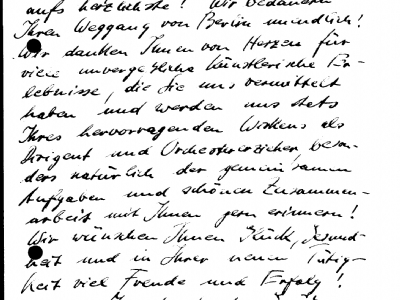 aufs herzlichste! Wir bedauern
Ihren Weggang von Berlin unendlich!
Wir danken Ihnen von Herzen für
viele unvergeßliche künstlerische Er-
lebnisse, die Sie uns vermittelt
haben und werden uns stets
Ihres hervorragenden Wirkens als
Dirigent und Orchestererzieher, beson-
ders natürlich der gemeinsamen
Aufgaben und schönen Zusammen-
arbeit mit Ihnen gern erinnern!
Wir wünschen Ihnen Glück, Gesund-
heit und in Ihrer neuen Tätig-
keit viel Freude und Erfolg!